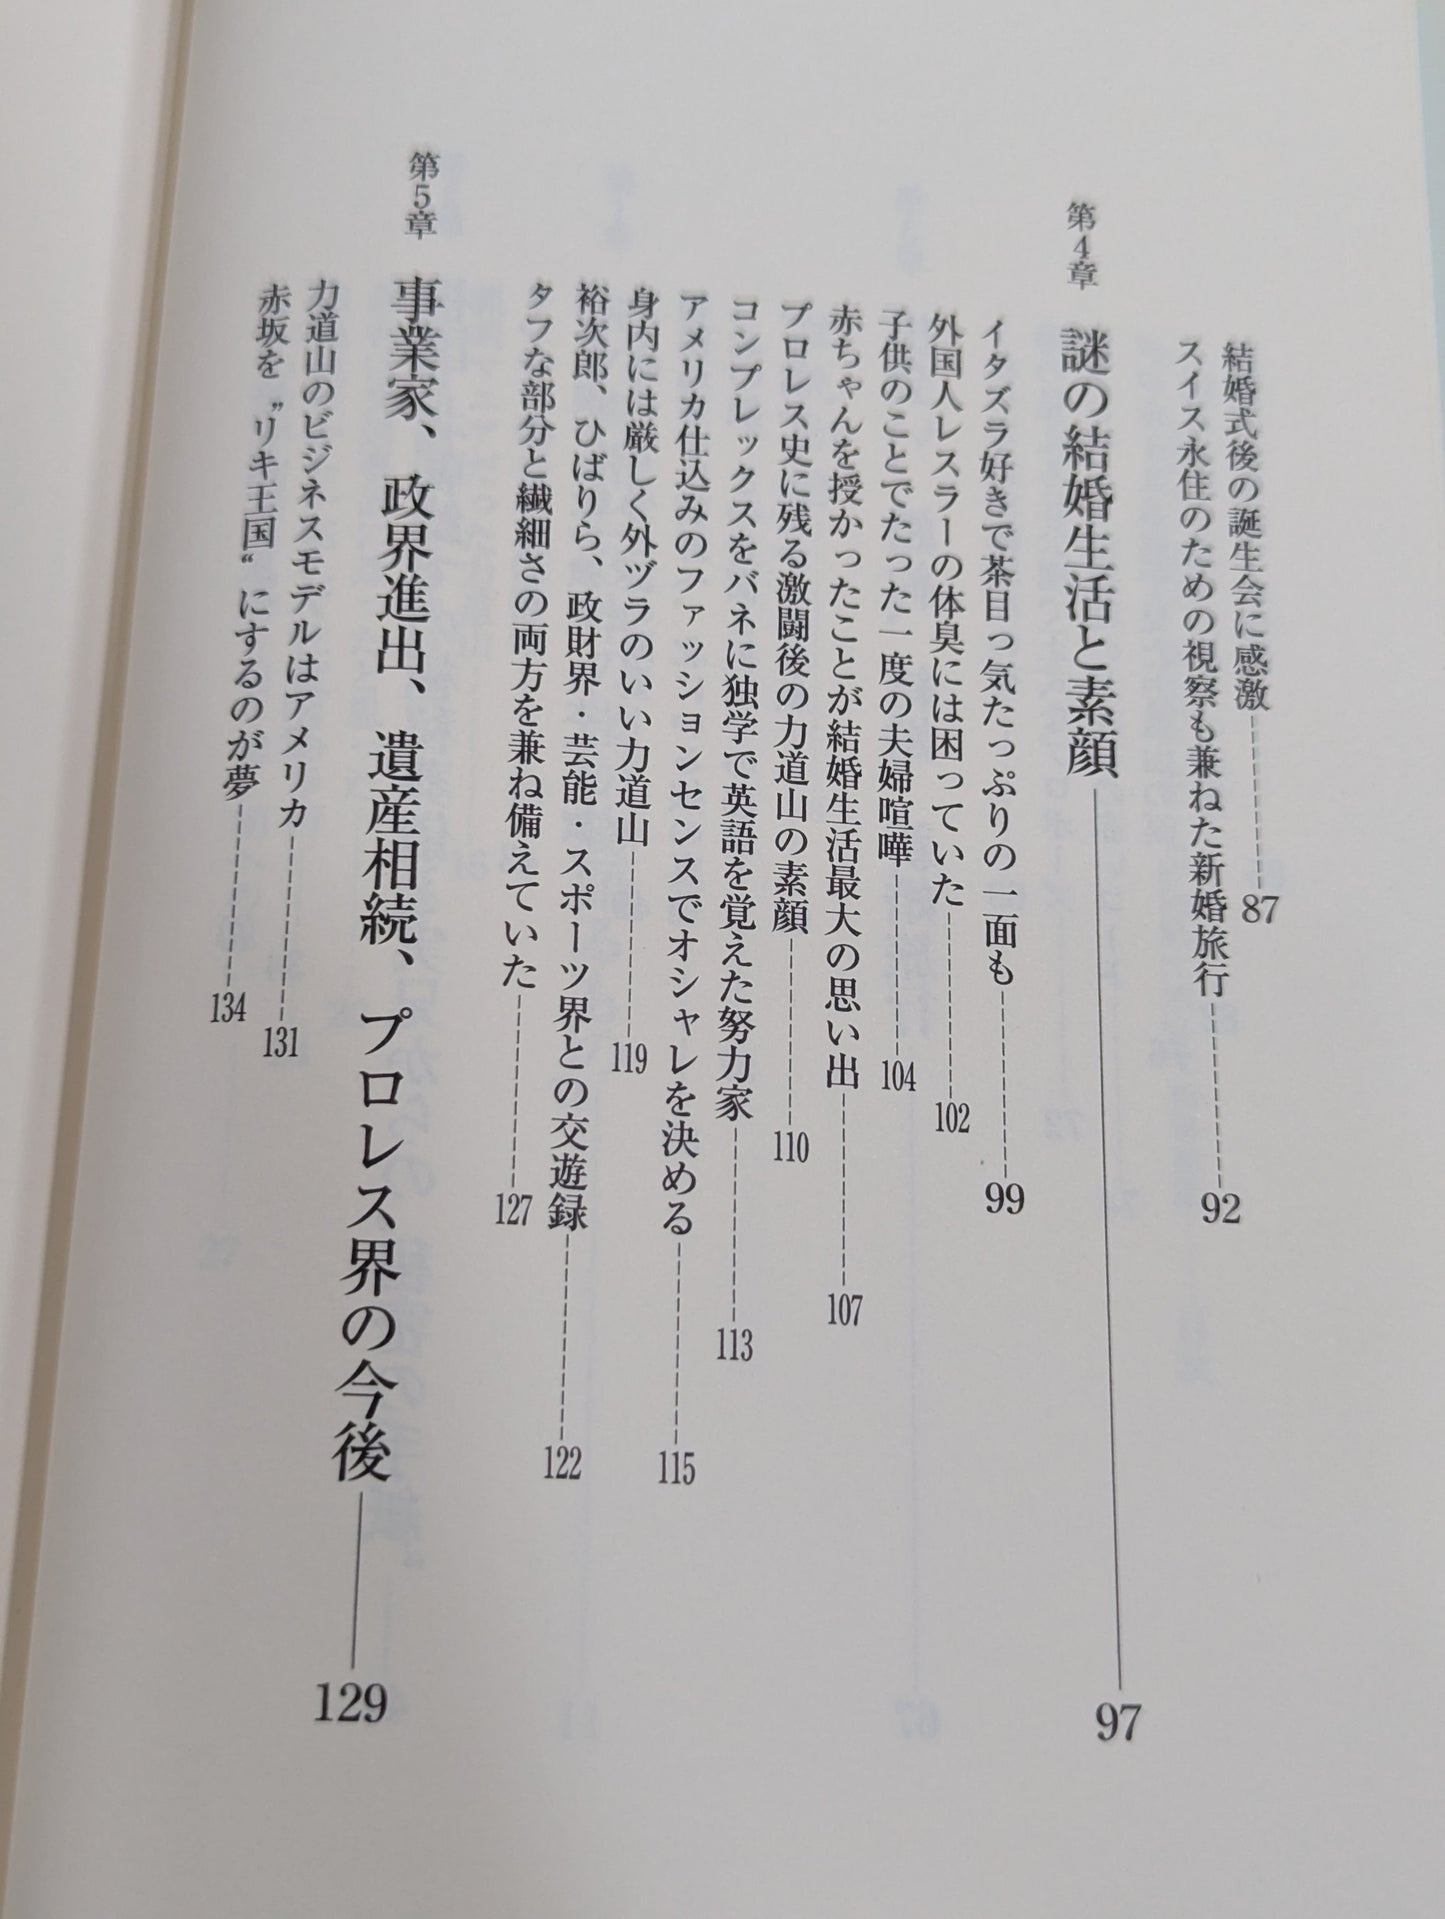 結婚式後の誕生会に感激 87
スイス永住のための視察も兼ねた新婚旅行 92
第4章 謎の結婚生活と素顔 97
イタズラ好きで茶目っ気たっぷりの一面も 99
外国人レスラーの体臭には困っていた 102
子供のことでたった一度の夫婦喧嘩 104
赤ちゃんを授かったことが結婚生活最大の思い出 107
プロレス史に残る激闘後の力道山の素顔 110
コンプレックスをバネに独学で英語を覚えた努力家 113
アメリカ仕込みのファッションセンスでオシャレを決める 115
身内には厳しく外ヅラのいい力道山 119
裕次郎、ひばりら、政財界・芸能・スポーツ界との交遊録 122
タフな部分と繊細さの両方を兼ね備えていた 127
第5章 事業家、政界進出、遺産相続、プロレス界の今後 129
力道山のビジネスモデルはアメリカ 131
赤坂を〝リキ王国〟にするのが夢 134